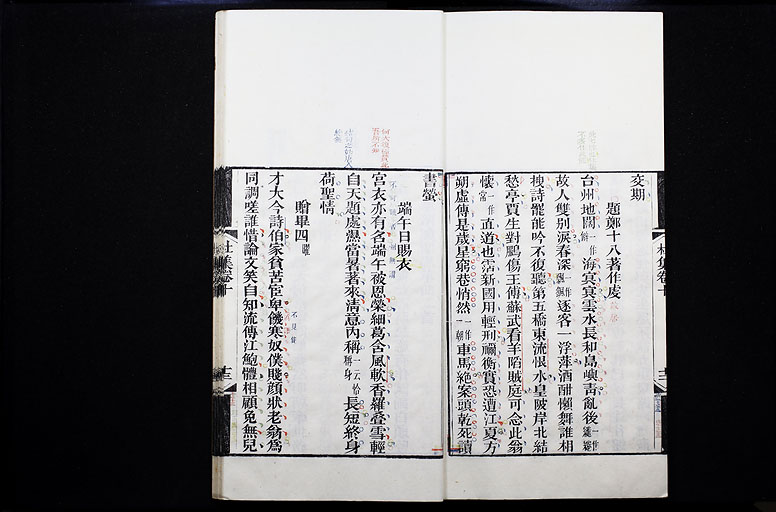 交期
題鄭十八著作虔
台州地闊一作僻海冥冥雲水長和島嶼青亂後一作
故人雙別淚春深一作逐客一浮萍酒酣懶舞誰相
拽詩罷能吟不復聽第五橋東流恨水皇陂岸北結
愁亭賈生對鵩傷王傅蘇武看羊陷賊庭可念此翁
懷一作常直道也霑新國用輕刑禰衡實恐遭江夏方
朔虛傳是歲星窮巷悄然一作車馬絕案頭乾死讀
杜集卷十
書螢
端午日賜衣
宮衣亦有名端午被恩榮細葛含風軟香羅疊雪輕
自天題處濕當暑著來清意內稱一云恰稱身長短終身
荷聖情
贈畢四曜
才大今詩伯家貧苦宦卑饑寒奴僕賤顏狀老翁為
同調嗟誰惜論文笑自知流傳江鮑體相顧免無兒
杜集卷十